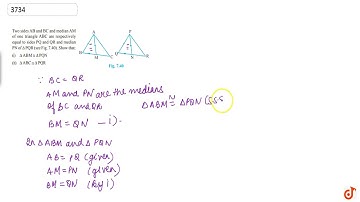 3734
Two sides AB and BC and median AM
of one triangle ABC are respectively
equal to sides PQ and QR and median
PN of Δ PQR (see Fig. 7.40). Show that:
(i) Δ ABM ≅ Δ PQN
(ii) Δ ABC ≅ Δ PQR
A
B M C
P
Q N R
Fig. 7.40
∵ BC = QR
AM and PN are the medians
of BC and QR
BM = QN – i).
ΔABM ≅ ΔPQN (SSS
In ΔABM and ΔPQN
AB = PQ (given)
AM = PN (given)
BM = QN (by i)